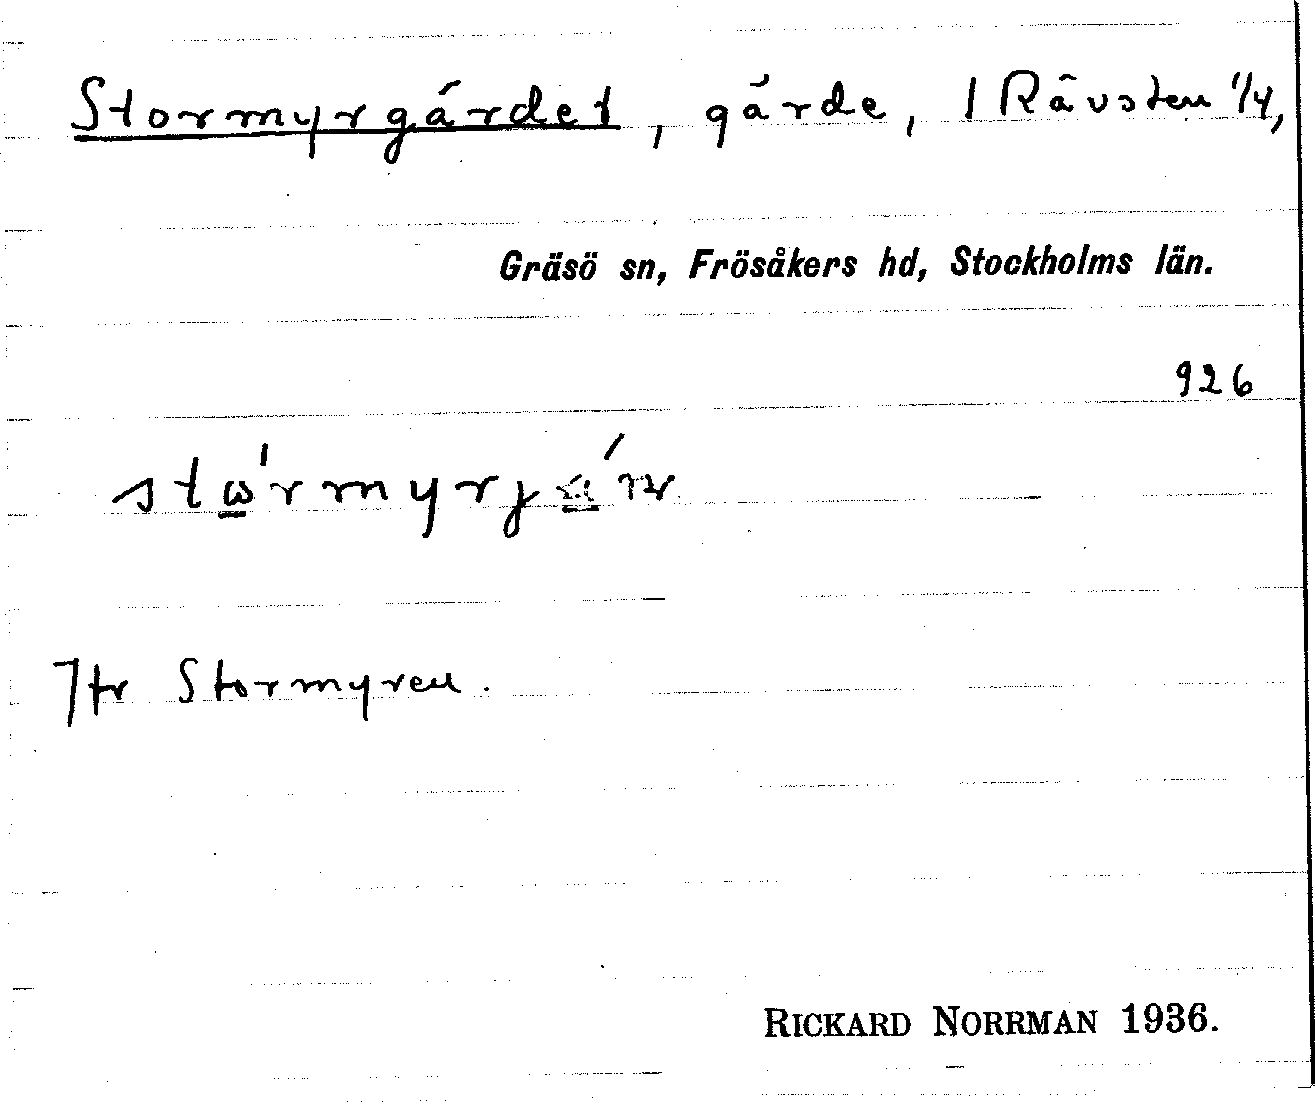 Stormyrgärdet, gärde, 1 Rävsten 1/4,
Gräsö sn, Frösåkers hd, Stockholms län.
926
Jfr Stormyren.
RICKARD NORRMAN 1936.